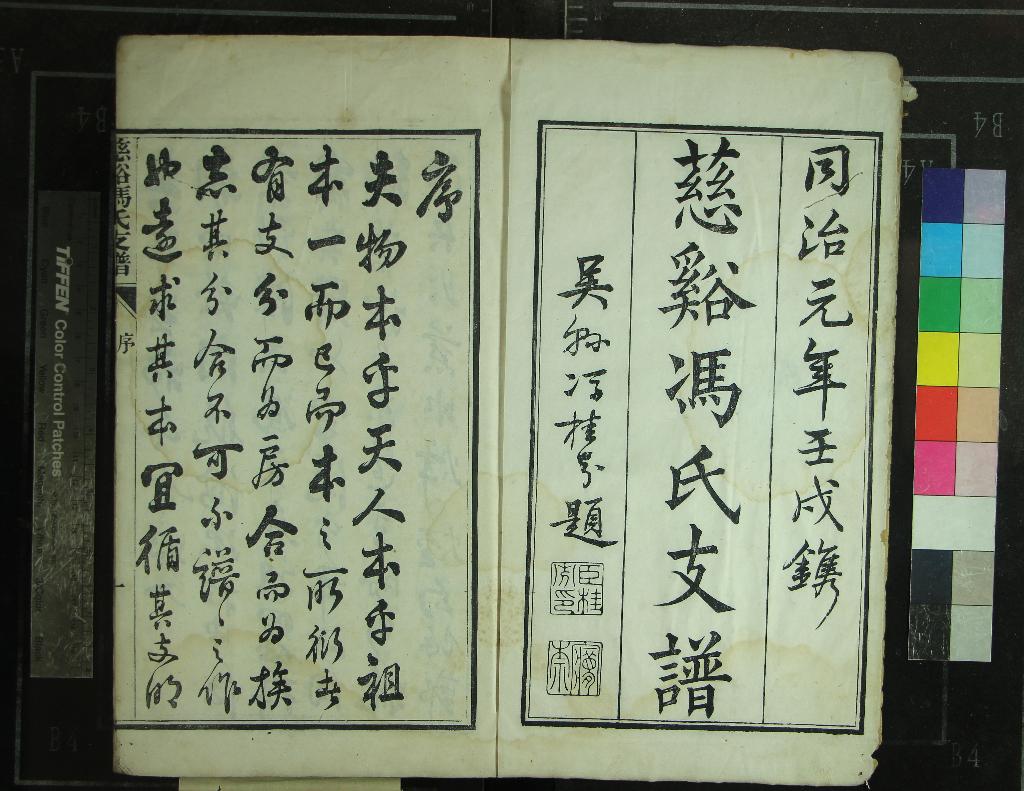 同治元年壬戌鐫
慈谿馮氏支譜
吳縣馮桂芬題
臣桂芬印
序
夫物本乎天人本乎祖
本一而已而本之所衍者
有支分而為房合而為族
志其分合不可不譜譜之作
也遠求其本宜循其支明
慈谿馮氏支譜
序
一
TIFFEN Color Control Patches
B4
B4
B4
B4
A4